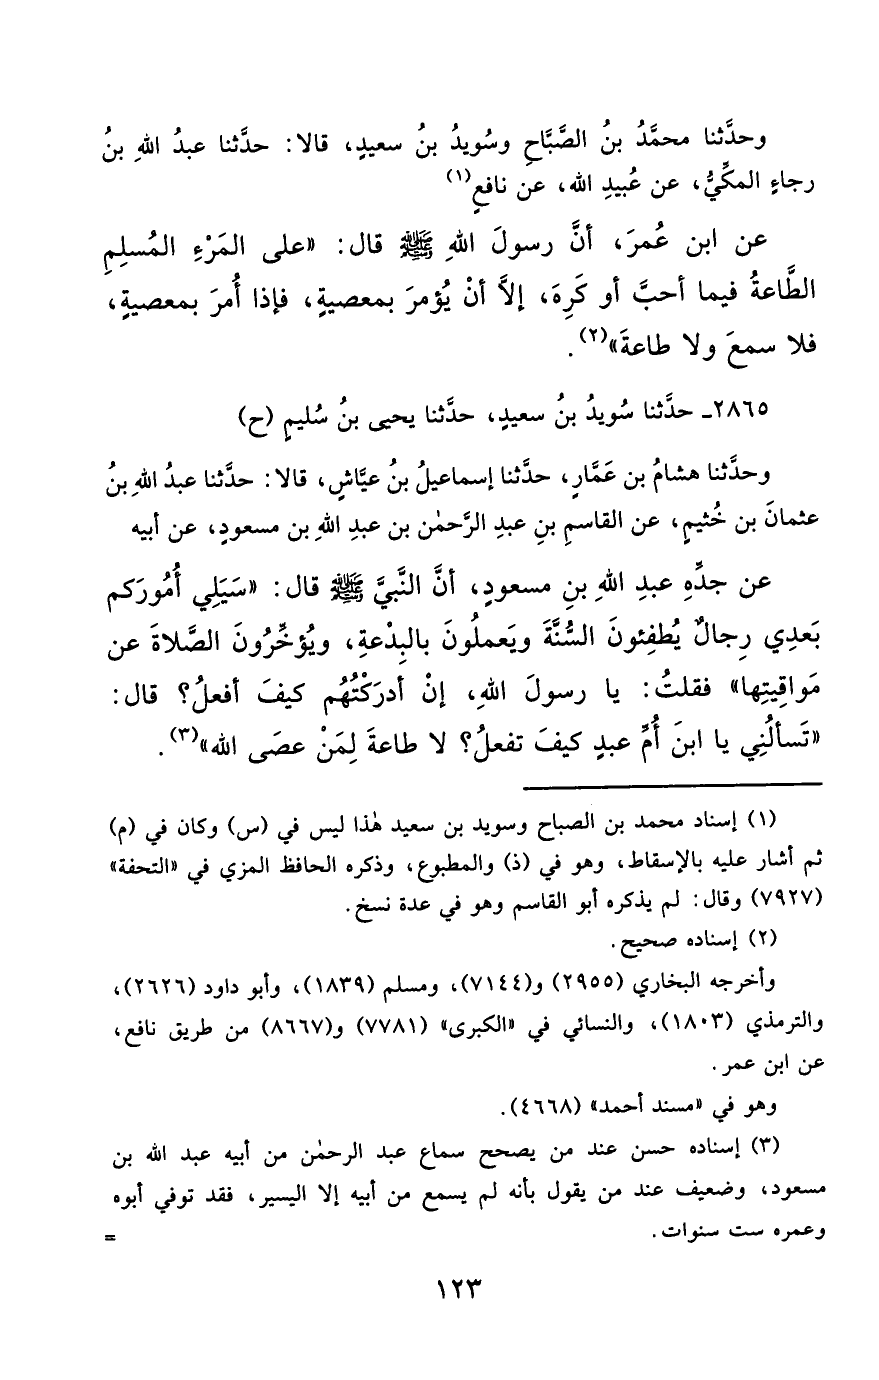 وحدَّثنا محمَّدُ بنُ الصَّبَّاحِ وسُويدُ بنُ سعيدٍ، قالا: حدَّثنا عبدُ اللهِ بنُ
رجاءٍ المكِّيُّ، عن عُبيدِ الله، عن نافعٍ(١)
عن ابن عُمرَ، أنَّ رسولَ اللهِ ﷺ قال: «على المَرْءِ المُسلِمِ
الطَّاعةُ فيما أحبَّ أو كَرِهَ، إلاَّ أنْ يُؤمرَ بمعصيةٍ، فإذا أُمرَ بمعصيةٍ،
فلا سمعَ ولا طاعةَ»(٢).
٢٨٦٥ـ حدَّثنا سُويدُ بنُ سعيدٍ، حدَّثنا يحيى بنُ سُليمٍ (ح)
وحدَّثنا هشامُ بن عَمَّارٍ، حدَّثنا إسماعيلُ بنُ عيَّاشٍ، قالا: حدَّثنا عبدُ اللهِ بنُ
عثمانَ بن خُثيمٍ، عن القاسمِ بنِ عبدِ الرَّحمٰن بن عبدِ اللهِ بن مسعودٍ، عن أبيه
عن جدِّهِ عبدِ اللهِ بنِ مسعودٍ، أنَّ النَّبيَّ ﷺ قال: «سَيَلِي أُمُورَكم
بَعدِي رِجالٌ يُطفِئونَ السُّنَّةَ ويَعملُونَ بالبِدْعةِ، ويُؤخِّرُونَ الصَّلاةَ عن
مَواقِيتِها» فقلتُ: يا رسولَ اللهِ، إنْ أدرَكْتُهُم كيفَ أفعلُ؟ قال:
«تَسألُنِي يا ابنَ أُمِّ عبدٍ كيفَ تفعلُ؟ لا طاعةَ لِمَنْ عصَى الله»(٣).
(١) إسناد محمد بن الصباح وسويد بن سعيد هٰذا ليس في (س) وكان في (م)
ثم أشار عليه بالإسقاط، وهو في (ذ) والمطبوع، وذكره الحافظ المزي في «التحفة»
(٧٩٢٧) وقال: لم يذكره أبو القاسم وهو في عدة نسخ.
(٢) إسناده صحيح.
وأخرجه البخاري (٢٩٥٥) و(٧١٤٤)، ومسلم (١٨٣٩)، وأبو داود (٢٦٢٦)،
والترمذي (١٨٠٣)، والنسائي في «الكبرى» (٧٧٨١) و(٨٦٦٧) من طريق نافع،
عن ابن عمر.
وهو في «مسند أحمد» (٤٦٦٨).
(٣) إسناده حسن عند من يصحح سماع عبد الرحمٰن من أبيه عبد الله بن
مسعود، وضعيف عند من يقول بأنه لم يسمع من أبيه إلا اليسير، فقد توفي أبوه
وعمره ست سنوات. =
١٢٣